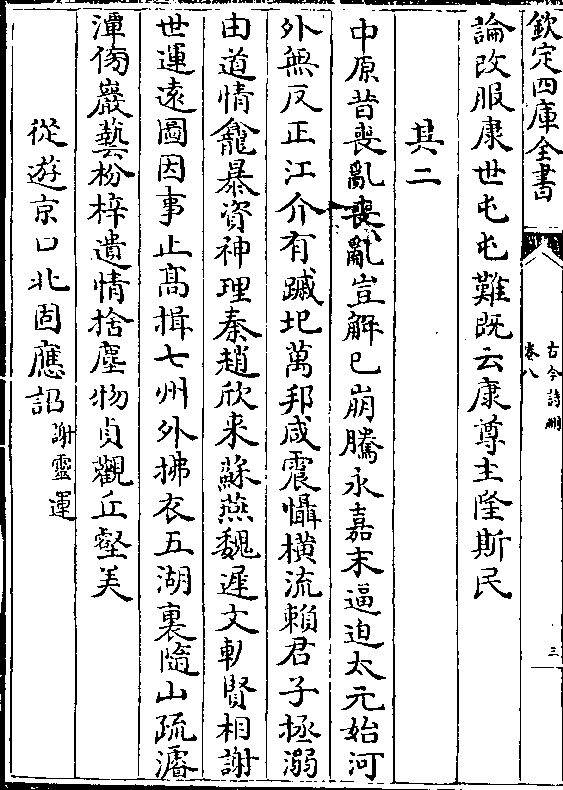 欽定四庫全書
古今詩刪
卷八
三
論改服康世屯屯難既云康尊主隆斯民
其二
中原昔喪亂喪亂豈解已崩騰永嘉末逼迫太元始河
外無反正江介有蹴圯萬邦咸震懾橫流賴君子拯溺
由道情龕暴資神理秦趙欣来蘇燕魏遲文軌賢相謝
世運遠圖因事止髙揖七州外拂衣五湖裏隨山疏濬
潭傍巖藝枌梓遺情捨塵物貞觀丘壑美
從遊京口北固應詔謝靈運